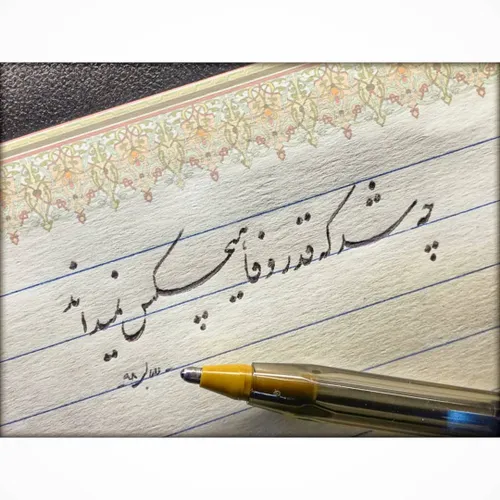 چه شد که قدر وفا هیچکس نمیداند